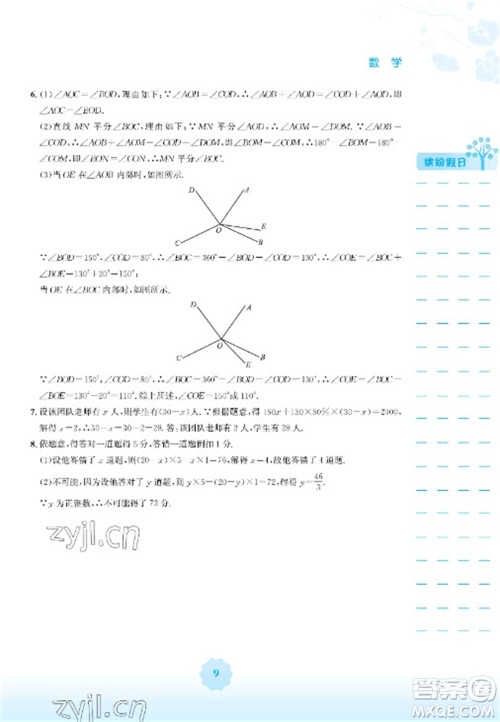 数 学
缤纷假日
6. (1)∠AOC=∠BOD,理由如下:∵∠AOB=∠COD,∴∠AOB+∠BOC=∠COD+∠BOC,即
∠AOC=∠BOD.
(2)直线 MN 平分∠BOC,理由如下:∵MN 平分∠AOD,∴∠AOM=∠DOM.∵∠AOB=
∠COD,∴∠AOM+∠AOB=∠DOM+∠COD,∴180°-
即∠BON=∠CON,∴直线 MN 平分∠BOC.
(3)当 OE 在∠AOB 内部时,如图所示.
D
A
O
E
C
B
∵∠BOD=150°,∠COD=80°,∴∠BOC=360°-∠BOD-∠COD=130°,∴∠COE=∠BOC+
∠BOE=130°+20°=150°;
当 OE 在∠BOC 内部时,如图所示.
D
A
O
E
C
B
∵∠BOD=150°,∠COD=80°,∴∠BOC=360°-∠BOD-∠COD=130°,∴∠COE=∠BOC-
∠BOE=130°-20°=110°,综上所述,∠COE=150°或110°.
7. 设该团队老师有 x 人,则学生有(30-x)人.根据题意,得 150x+150×50%×(30-x)=2400,
解得x=2,∴30-x=30-2=28. 答:老师有 2 人,学生有 28 人.
8. 依题意,得答对一道题得 5 分,答错一道题倒扣 1 分.
(1)设他答错了 x 道题,则(20-x)×5-x×1=76,解得x=4. 答:他答错了 4 道题.
(2)不可能,因为设他答对了 y 道题,则 y×5-(20-y)×1=72,解得y=46/3.
∵y 为正整数,∴不可能得了 72 分.
zyjl.cn
9
zyjl.cn
答案圈
MXQE.COM